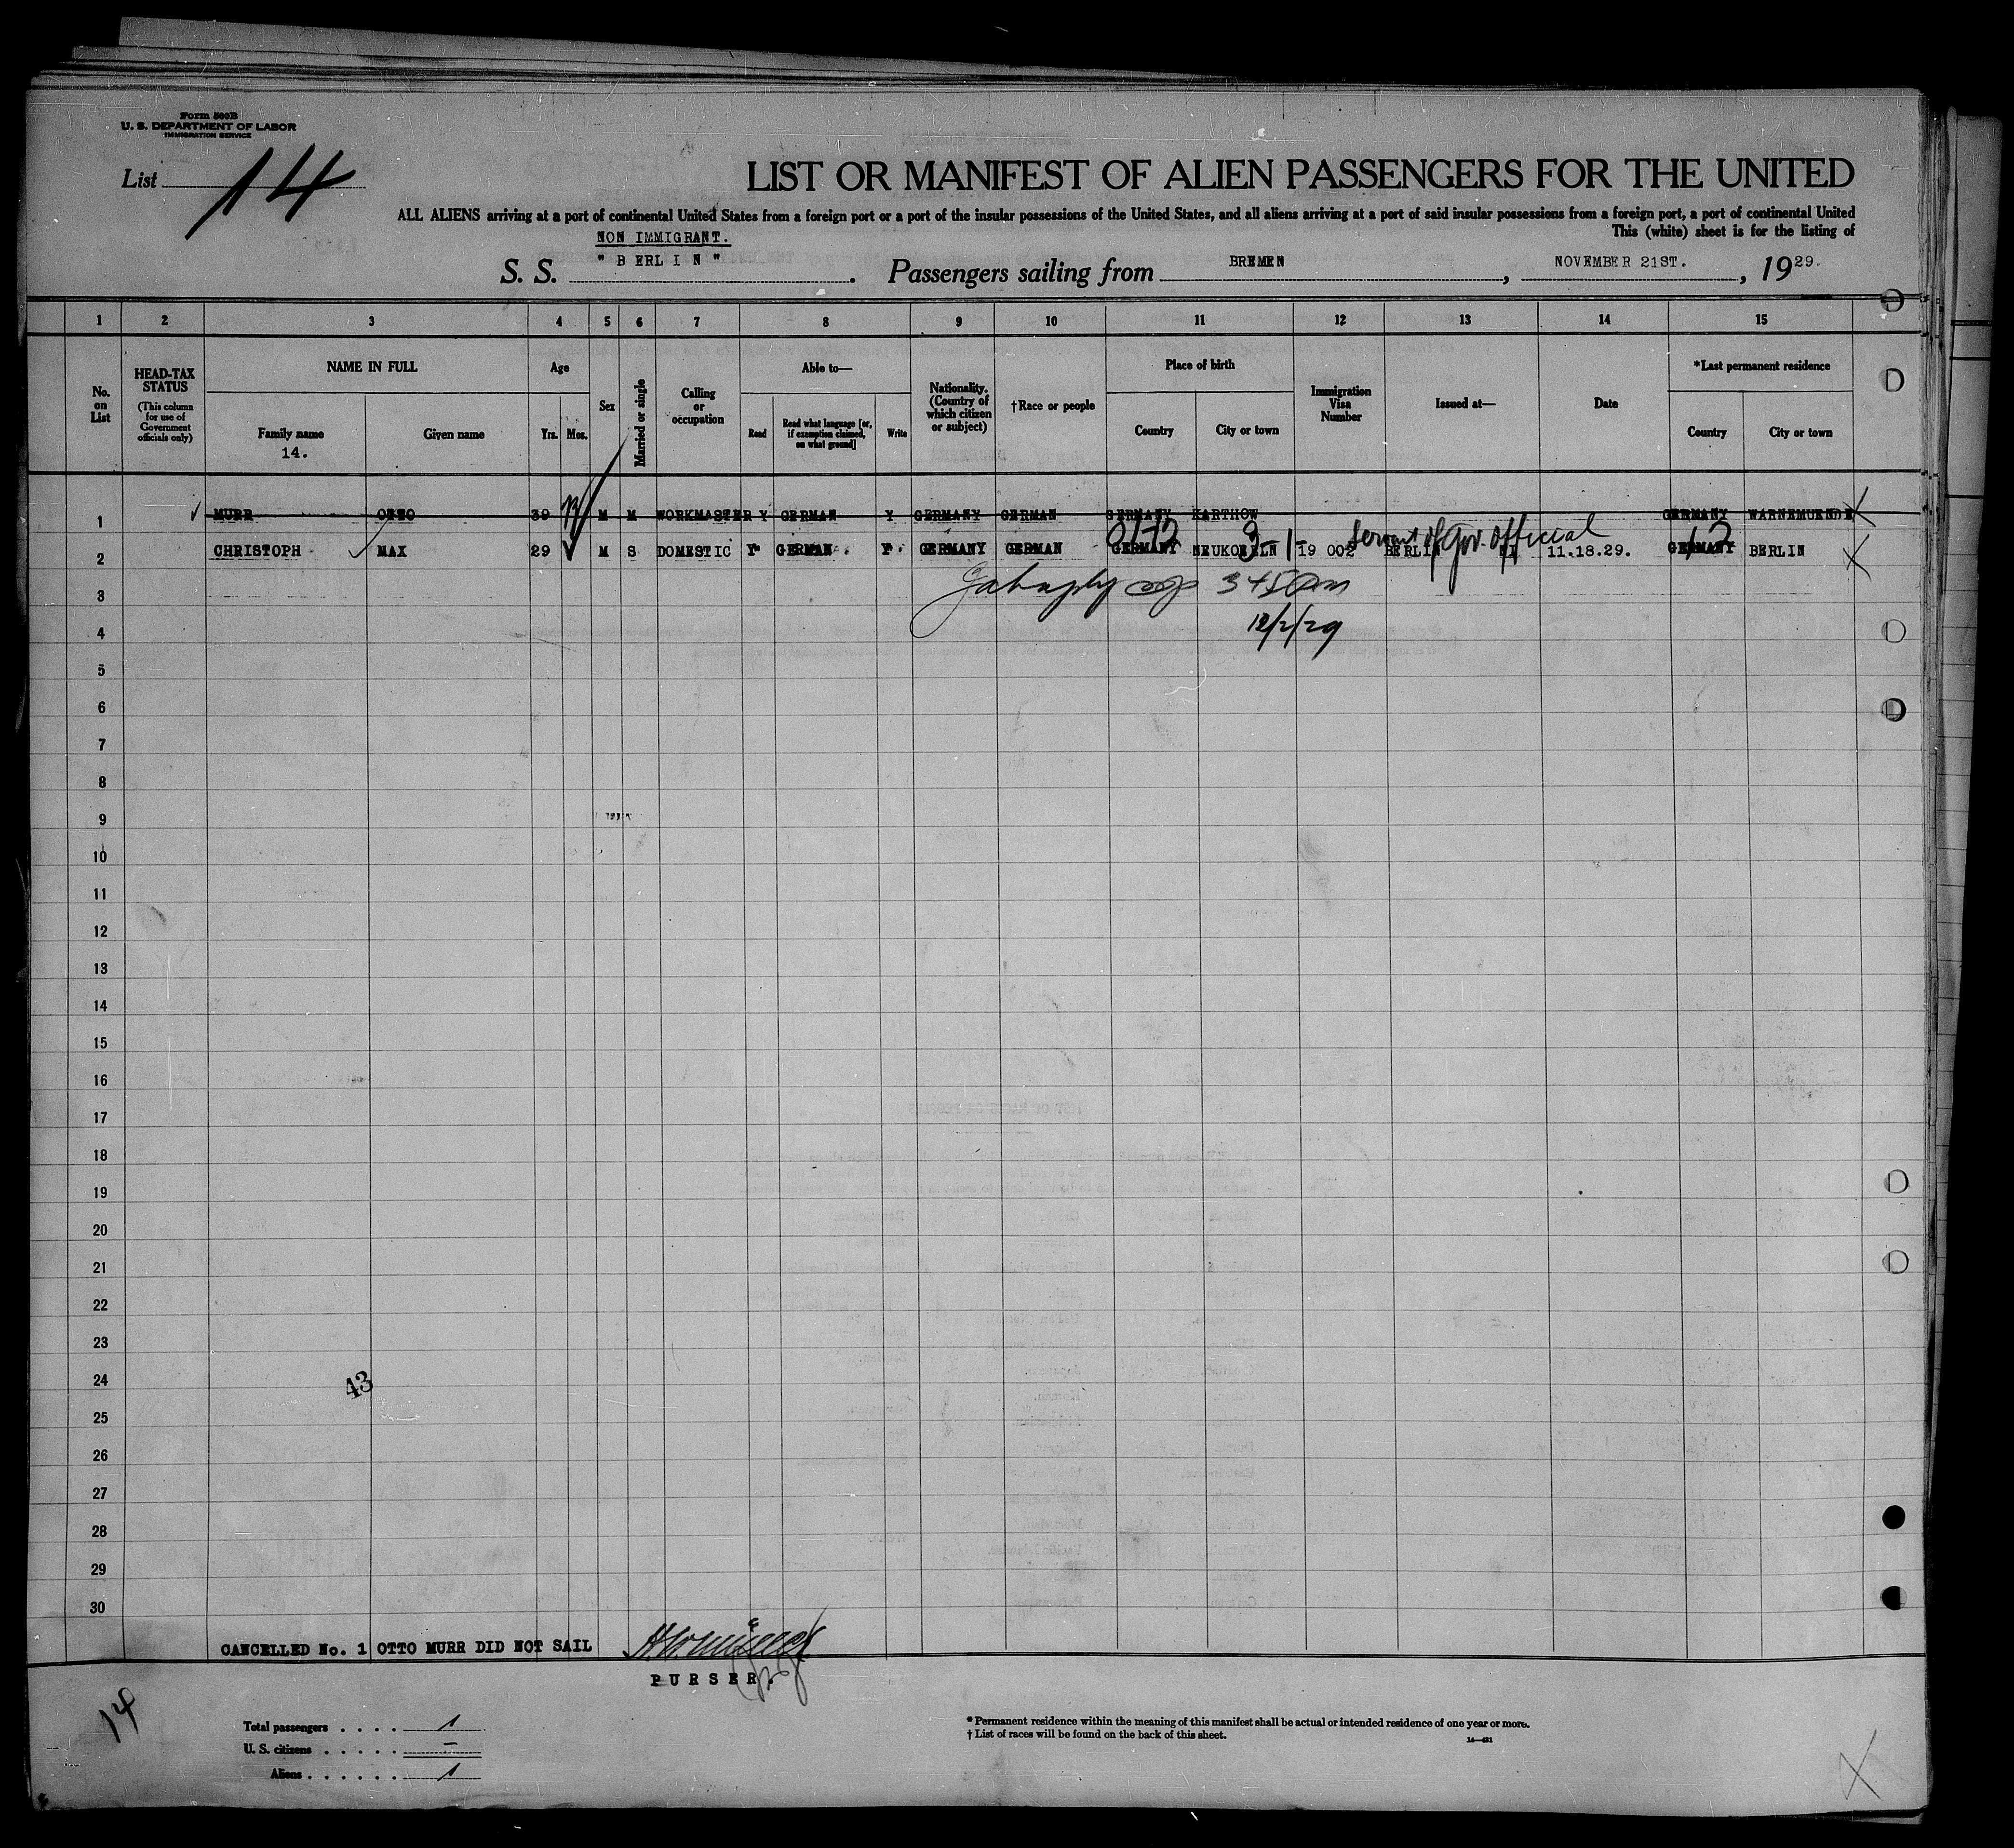 Form 500B
U. S. DEPARTMENT OF LABOR
IMMIGRATION SERVICE
List 14
LIST OR MANIFEST OF ALIEN PASSENGERS FOR THE UNITED
ALL ALIENS arriving at a port of continental United States from a foreign port or a port of the insular possessions of the United States, and all aliens arriving at a port of said insular possessions from a foreign port, a port of continental United
This (white) sheet is for the listing of
NON IMMIGRANT.
S. S. "BERLIN". Passengers sailing from BREMEN, NOVEMBER 21ST., 1929.
1 2 3 4 5 6 7 8 9 10 11 12 13 14 15
No. on List
HEAD-TAX STATUS
(This column for use of Government officials only)
NAME IN FULL
Family name
14.
Given name
Age
Yrs. Mos.
Sex
Married or single
Calling or occupation
Able to—
Read
Read what language [or, if exemption claimed, on what ground]
Write
Nationality. (Country of which citizen or subject)
†Race or people
Place of birth
Country
City or town
Immigration Visa Number
Issued at—
Date
*Last permanent residence
Country
City or town
1 MURR OTTO 39 M M WORKMASTER Y GERMAN Y GERMANY GERMAN GERMANY KARTHOW GERMANY WARNEMUENDE
Servant of Gov. official
2 CHRISTOPH MAX 29 M S DOMESTIC Y GERMAN Y GERMANY GERMAN GERMANY NEUKOELLN 19 002 BERLIN 11.18.29. GERMANY BERLIN
3
12/2/29
4
5
6
7
8
9
10
11
12
13
14
15
16
17
18
19
20
21
22
23
24
43
25
26
27
28
29
30
CANCELLED No. 1 OTTO MURR DID NOT SAIL
PURSER.
14
Total passengers . . . . 1
U. S. citizens . . . . . –
Aliens . . . . . . 1
* Permanent residence within the meaning of this manifest shall be actual or intended residence of one year or more.
† List of races will be found on the back of this sheet.